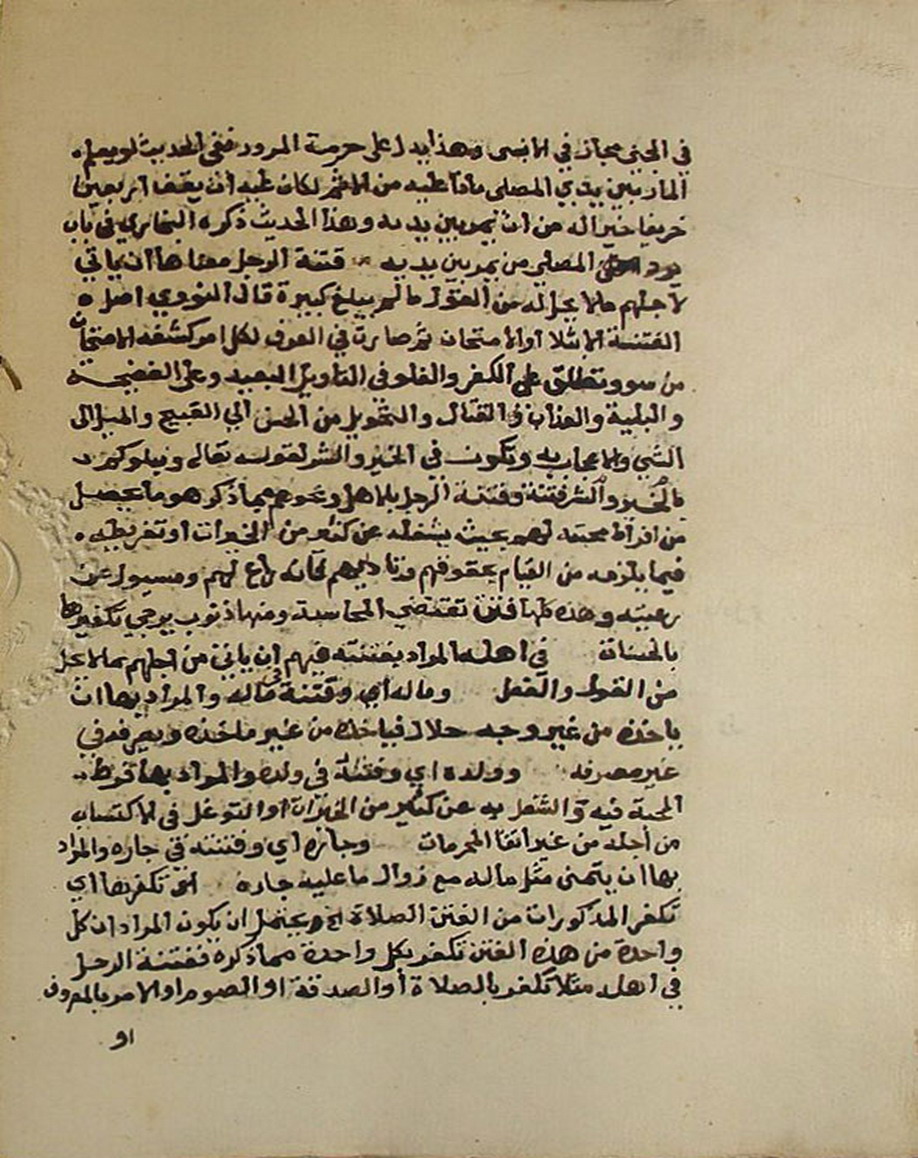 في الجني مجاز في الانسي وهذا يدل على حرمة المرور ففي الحديث لو يعلم
المار بين يدي المصلي ماذا عليه من الاثم لكان عليه ان يقف اربعين
خريفا خير اله من ان يمر بين يديه وهذا الحديث ذكره البخاري في باب
يرد المصلي من يمر بين يديه فتنة الرجل معناها ان ياتي
لاجلهم مالا يحل له من القول مالم يبلغ كبيرة قال النووي اصل
الفتنة الابتلا والامتحان ثم صارت في العرف لكل امر كشفه الامتحان
من سوء وتطلق على الكفر والغلو في التاويل البعيد وعلى الفضيحة
والبلية والعذاب والقتال والتحويل من الحسن الي القبيح والميل الى
الشي والاعجاب به وتكون في الخير والشر لقوله تعالى ونبلوكم
بالخير والشر فتنة وفتنة الرجل بالاهل ونحوهم مما ذكر هو ما يحصل
من افراط محبته لهم بحيث يشغله عن كثير من الخيرات او تفريطه
فيما يلزمه من القيام بحقوقهم وتاديبهم فانه راع لهم ومسيول عن
رعيته وهذه كلها فتن تقتضي المحاسبة ومنها ذنوب يرجي تكفيرها
بالحسنات في اهله المراد بفتنته فيهم ان ياتي من اجلهم بمالا يحل
من القول والفعل وماله اي وفتنة في ماله والمراد بها ان
ياخذه من غير وجه حلال فياخذه من غير ماخذه ويصرفه في
غير مصرفه وولده اي وفتنته في ولده والمراد بها فرط
المحبة فيه والشغل به عن كثير من الخيرات او التوغل في الاكتساب
من اجله من غير اتقا المحرمات وجاره اي وفتنته في جاره والمراد
بها ان يتمنى مثل ماله مع زوال ما عليه جاره تكفرها اي
تكفر المذكورات من الفتن الصلاة الخ ويحتمل ان يكون المراد ان كل
واحدة من هذه الفتن تكفر بكل واحدة مما ذكره ففتنة الرجل
في اهله مثلا تكفر بالصلاة أو الصدقة او الصوم او الامر بالمعروف
او